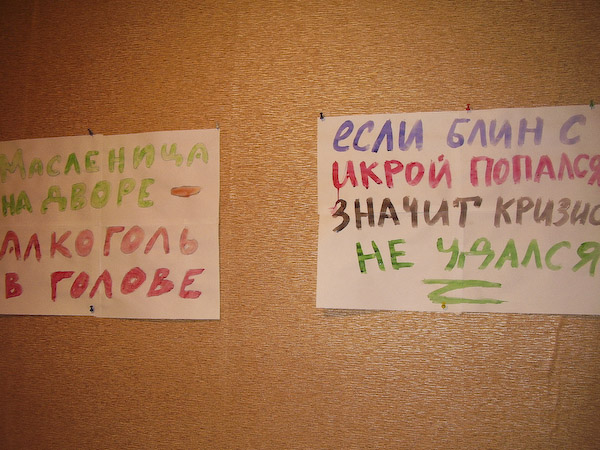 МАСЛЕНИЦА
НА ДВОРЕ -
АЛКОГОЛЬ
В ГОЛОВЕ
ЕСЛИ БЛИН С
ИКРОЙ ПОПАЛСЯ
ЗНАЧИТ КРИЗИС
НЕ УДАЛСЯ